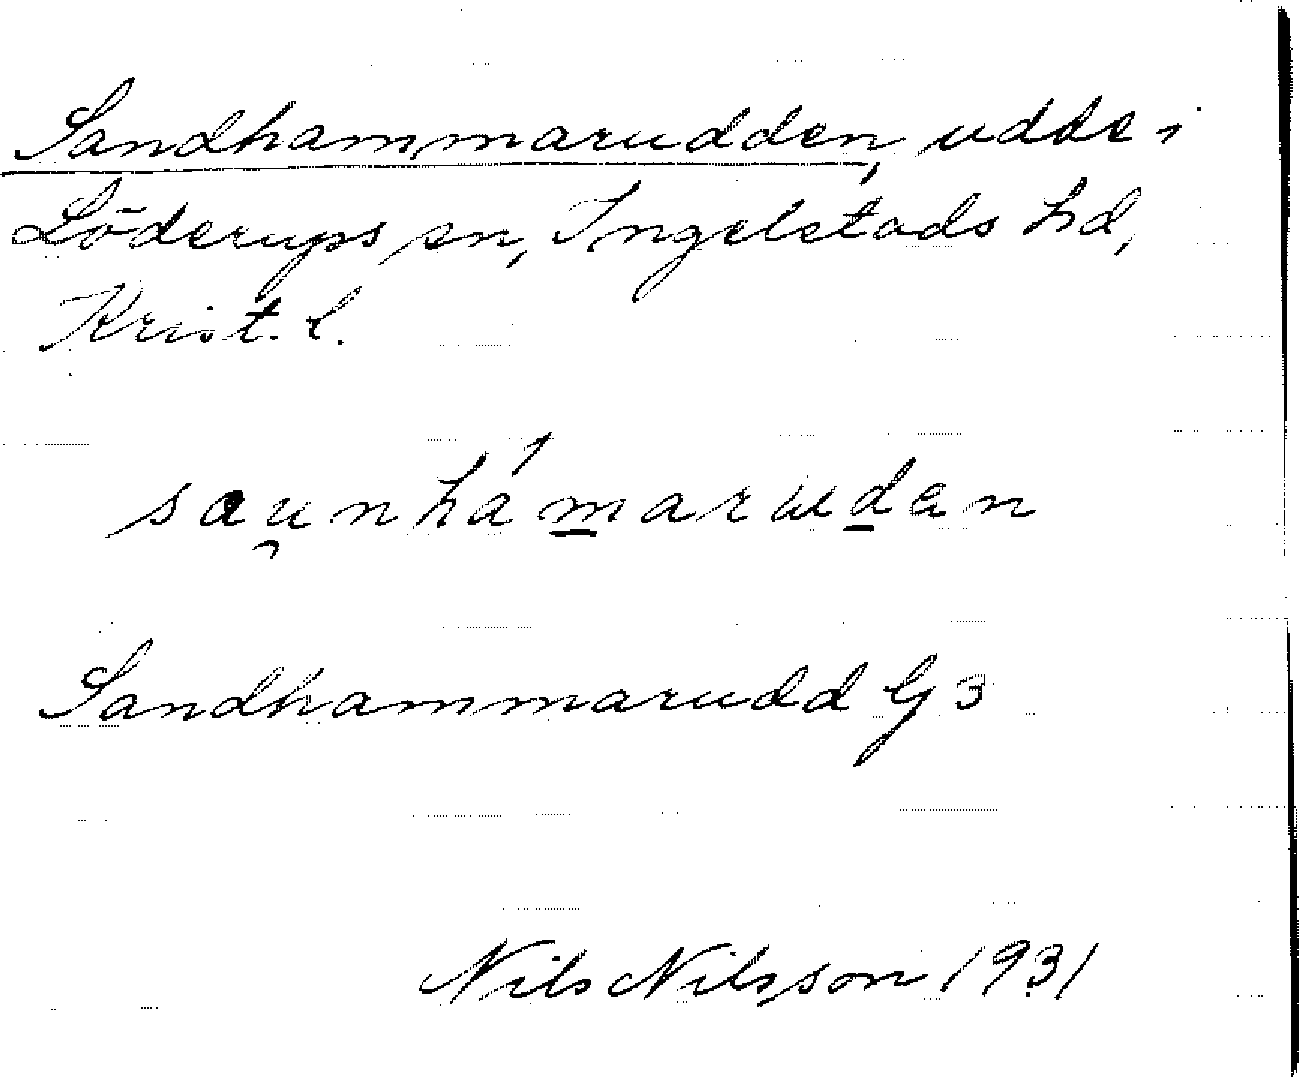 Sandhammarudden, udde i
Löderups sn, Ingelstads hd,
Krist. l.
sau̯nhámaruden
Sandhammarudd G 3
Nils Nilsson 1931